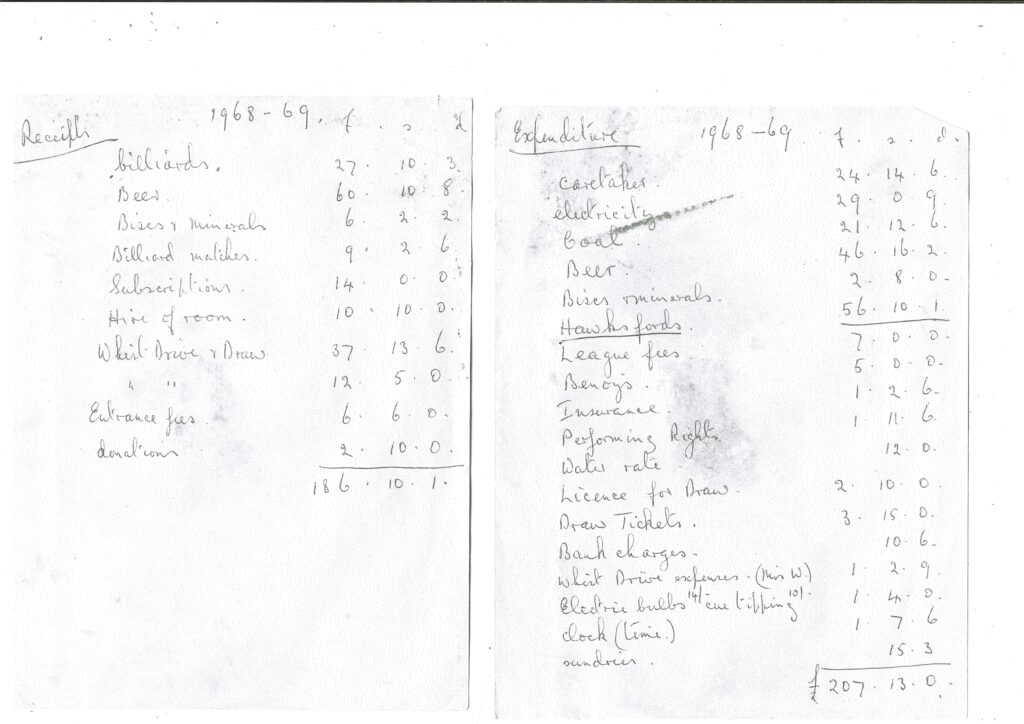 Receipts 1968-69. £ . s . d
billiards. 27 . 10 . 3
Beer. 60 . 10 . 8
Biscs & minerals 6 . 2 . 2
Billiard matches. 9 . 2 . 6
Subscriptions. 14 . 0 . 0
Hire of room. 10 . 10 . 0
Whist Drive & Draw 37 . 13 . 6
" " 12 . 5 . 0
Entrance fees 6 . 6 . 0
donations 2 . 10 . 0
186 . 10 . 1.
Expenditure 1968-69 . £ . s . d.
caretaker. 24 . 14 . 6
electricity 29 . 0 . 9
Coal . 21 . 12 . 6
Beer . 46 . 16 . 2
Biscs & minerals. 2 . 8 . 0
Hawksfords. 56 . 10 . 1
League fees . 7 . 0 . 0
Benoy's . 5 . 0 . 0
Insurance . 1 . 2 . 6
Performing Rights 1 . 11 . 6
Water rate 12 . 0
Licence for Draw. 2 . 10 . 0
Draw Tickets . 3 . 15 . 0
Bank charges . 10 . 6
Whist Drive expenses . (Mrs W.) 1 . 2 . 9
Electric bulbs 14/ cue tipping 10/- 1 . 4 . 0
clock (time.) 1 . 7 . 6
sundries . 15 . 3
£ 207 . 13 . 0 .